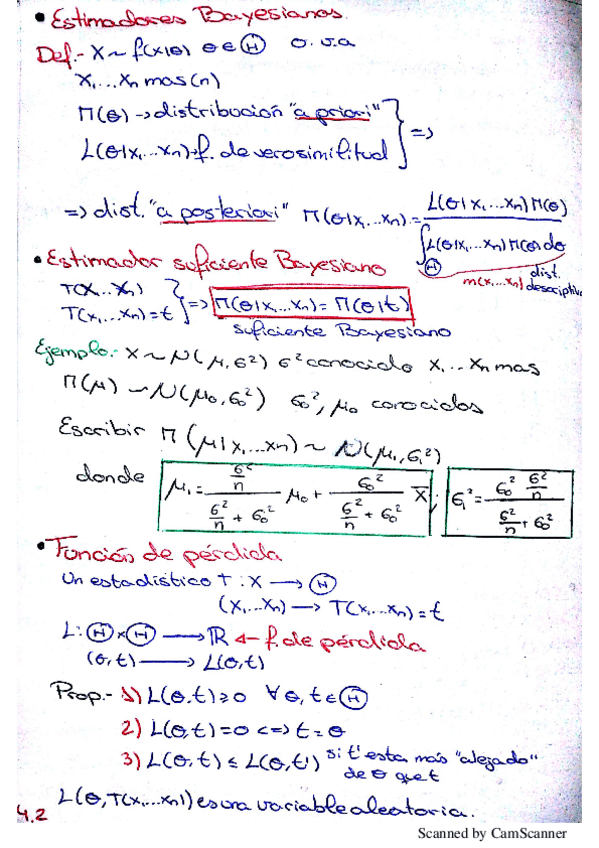 • Estimadores Bayesianos.
Def.- X ~ f(x|θ) θ ∈ Θ o. v. a
X₁...Xₙ mas(n)
Π(θ) → distribución "a priori"
L(θ|x₁...xₙ) → f. de verosimilitud } =>
=> dist. "a posteriori" Π(θ|x₁...xₙ) = L(θ|x₁...xₙ) Π(θ) / ∫_Θ L(θ|x₁...xₙ) Π(θ) dθ
• Estimador suficiente Bayesiano
m(x₁...xₙ) dist. descriptiva
T(X₁...Xₙ)
T(x₁...xₙ) = t } => Π(θ|x₁...xₙ) = Π(θ|t)
suficiente Bayesiano
Ejemplo.- X ~ N(μ, σ²) σ² conocido X₁...Xₙ mas
Π(μ) ~ N(μ₀, σ₀²) σ₀², μ₀ conocidos
Escribir Π(μ|x₁...xₙ) ~ N(μ₁, σ₁²)
donde μ₁ = (σ²/n)/(σ²/n + σ₀²) μ₀ + σ₀²/(σ²/n + σ₀²) X̄; σ₁² = (σ₀² σ²/n)/(σ²/n + σ₀²)
• Función de pérdida
Un estadístico T: X → Θ
(x₁...xₙ) → T(x₁...xₙ) = t
L: Θ×Θ → ℝ ← f. de pérdida
(θ, t) → L(θ, t)
Prop.- 1) L(θ, t) ≥ 0 ∀ θ, t ∈ Θ
2) L(θ, t) = 0 <=> t = θ
3) L(θ, t) ≤ L(θ, t') si t' esta más "alejado"
de θ que t
L(θ, T(x₁...xₙ)) es una variable aleatoria.
4.2
Scanned by CamScanner